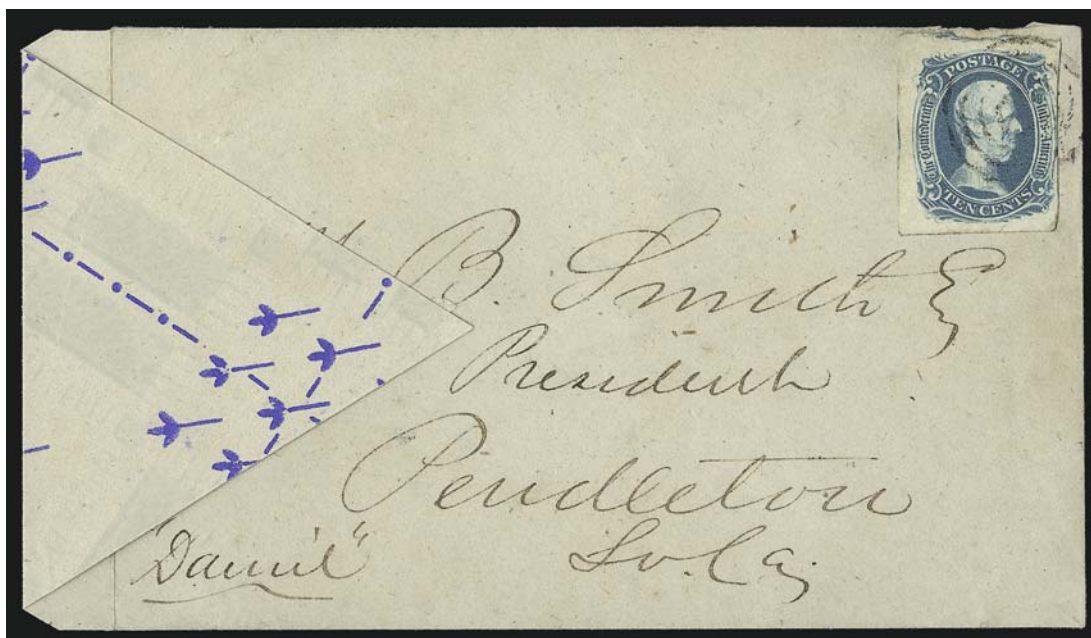 POSTAGE
The Confederate States of America
TEN CENTS
B. Smith Esq
President
Pendleton
So. Ca.
"Daniel"